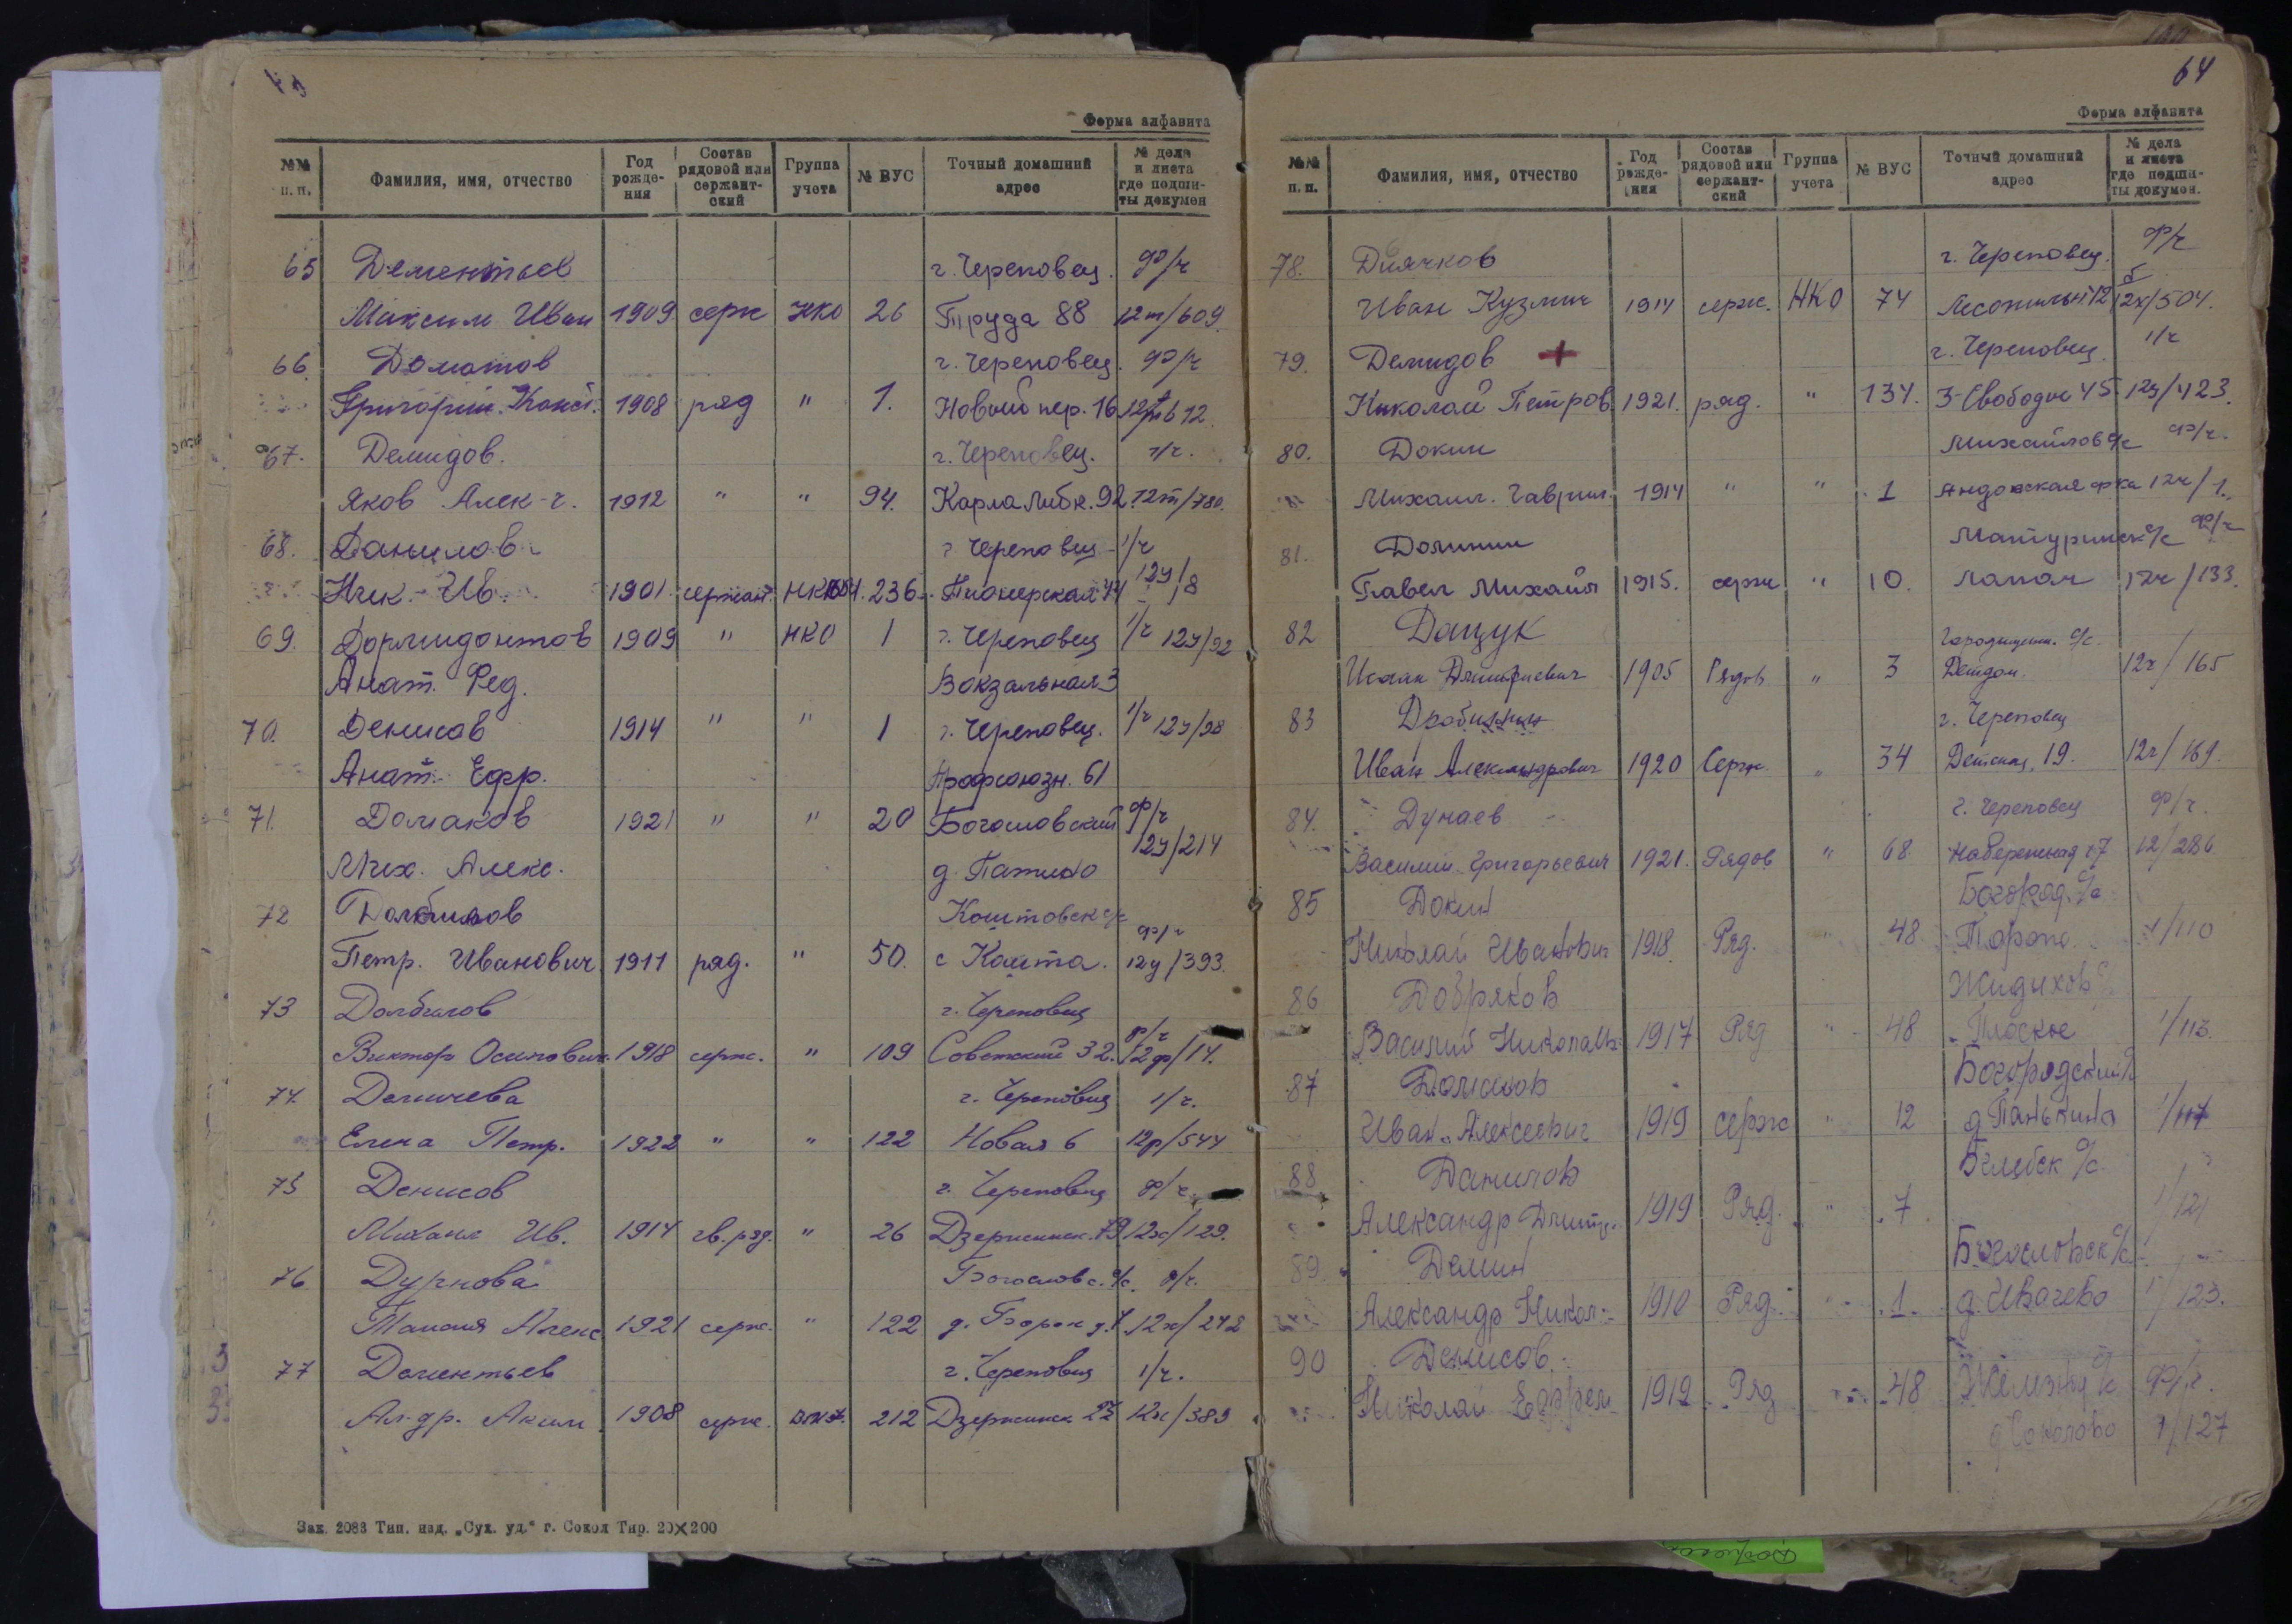 Форма алфавита
№№ п.п. Фамилия, имя, отчество Год рожде-ния Состав рядовой или сержант-ский Группа учета № ВУС Точный домашний адрес № дела и листа где подши-ты докумен
65 Дементьев г. Череповец. ф/ч
Максим Иван 1909 серж НКО 26 Труда 88 12т/609.
66. Доматов г. Череповец. ф/ч
Григорий Конст. 1908 ряд " 1. Новый пер. 16 12т/612
67. Демидов. г. Череповец. 1/ч.
Яков Алек-ч. 1912 " " 94. Карла Либк. 92 12т/780.
68. Данилов г Череповец 1/ч
Ник. Ив. 1901 сержант. 236. Пионерская 44 12у/8
69. Дормидонтов 1909 " НКО 1 г. Череповец 1/ч 12у/92
Анат. Фед. Вокзальная 3
70. Денисов 1914 " " 1 г. Череповец. 1/ч 12у/98
Анат. Ефр. Профсоюзн. 61
71. Долгаков 1921 " " 20 Богословский ф/ч 12у/214
Мих. Алекс. д.
72 Долбилов Коштовск с/с
Петр. Иванович 1911 ряд. " 50. с Кошта. ф/ч 12у/393.
73 Долбилов г. Череповец
Виктор Осипович. 1918 серж. " 109 Советский 32. ф/ч 12ф/14.
74. г. Череповец 1/ч.
Елена Петр. 1922 " " 122 Новая 6 12р/544
75 Денисов г. Череповец ф/ч
Михаил Ив. 1914 гв. ряд. " 26 Дзержинск. 79 12х/129.
76 Дурнова Богословс. с/с. ф/ч.
Алекс 1921 серж. " 122 д. 12х/272
77 Дементьев г. Череповец 1/ч.
Ал-др. Аким. 1908 серж. 212 Дзержинск 23 12х/389
Зак. 2083 Тип. изд. „Сух. уд.“ г. Сокол Тир. 20×200
64
Форма алфавита
№№ п.п. Фамилия, имя, отчество Год рожде-ния Состав рядовой или сержант-ский Группа учета № ВУС Точный домашний адрес № дела и листа где подши-ты докумен.
78. Диячков г. Череповец. ф/ч
Иван Кузмич 1914 серж. НКО 74 12х/504.
79. Демидов + г. Череповец. 1/ч
Николай Петров. 1921. ряд. " 134. 3-Свободы 45. 12у/423.
80. Докин Михайлов с/с ф/ч.
Михаил. Гаврил. 1914 " " 1 12ч/1.
81. Долинин Матуринск с/с ф/ч
Павел Михайл 1915. серж " 10. 12ч/133.
82 Дацук Городищен. с/с.
Исаак Дмитриевич 1905 Рядов " 3 Детдом. 12ч/165
83 г. Череповец
Иван Александрович 1920 Серж. " 34 Детская, 19. 12ч/169.
84. Дунаев г. Череповец ф/ч.
Василий Григорьевич 1921. Рядов " 68. Набережная 12/286
85 Докин Богород. с/с
Николай Иванович 1918. Ряд. " 48. 1/110
86 Добряков
Василий Николаев. 1917 Ряд " 48 Плоское 1/113.
87 Богородский
Иван Алексеевич 1919 серж " 12 д Панькино 1/117
88 Данилов с/с.
Александр Дмитр. 1919 Ряд. " 7 1/121
89. Демин Богословск с/с
Александр Никол. 1910 Ряд. " 1. д. Ивачево 1/123.
90 Денисов. ф/ч.
Николай Ефрем 1912 Ряд " 48
д Соколово 1/127